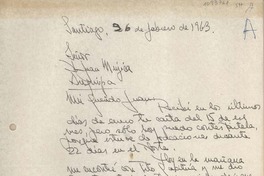 Santiago, 26 de febrero de 1963.
A
Señor
Juan Mejía
Arequipa
Mi querido Juan:
Recibí en los últimos
días de enero tu carta del 15 de es
mes, pero sólo hoy puedo contestártela
porque estuve de vacaciones durante
22 días en el
Hoy en la mañana
me encontré con Tito y me dio